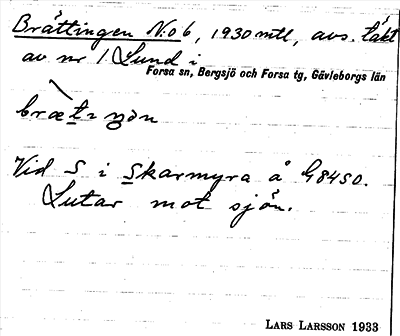 Brättingen N:o 6, 1930 mtl, avs. täkt
av nr 1 Lund i
Forsa sn, Bergsjö och Forsa tg, Gävleborgs län
Vid S i Skarmyra å G8450.
Lutar mot sjön.
LARS LARSSON 1933